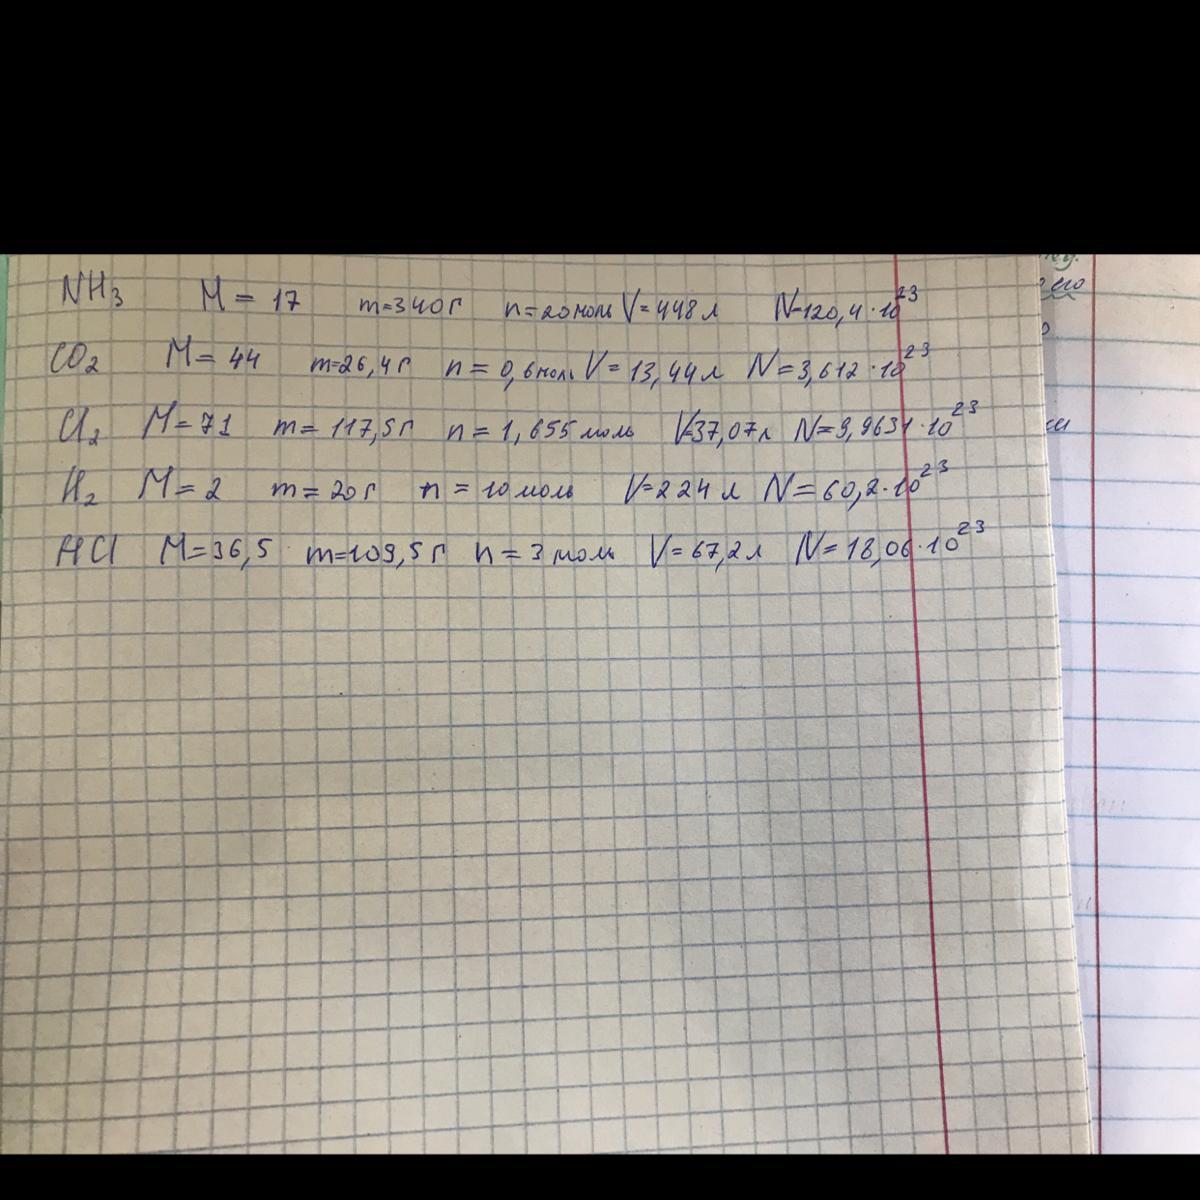 NH3 M = 17 m=340г n=20моль V=448л N=120,4·10^23
CO2 M=44 m=26,4г n=0,6моль V=13,44л N=3,612·10^23
Cl2 M=71 m=117,5г n=1,655моль V=37,07л N=9,9631·10^23
H2 M=2 m=20г n=10моль V=224л N=60,2·10^23
HCl M=36,5 m=109,5г n=3моль V=67,2л N=18,06·10^23